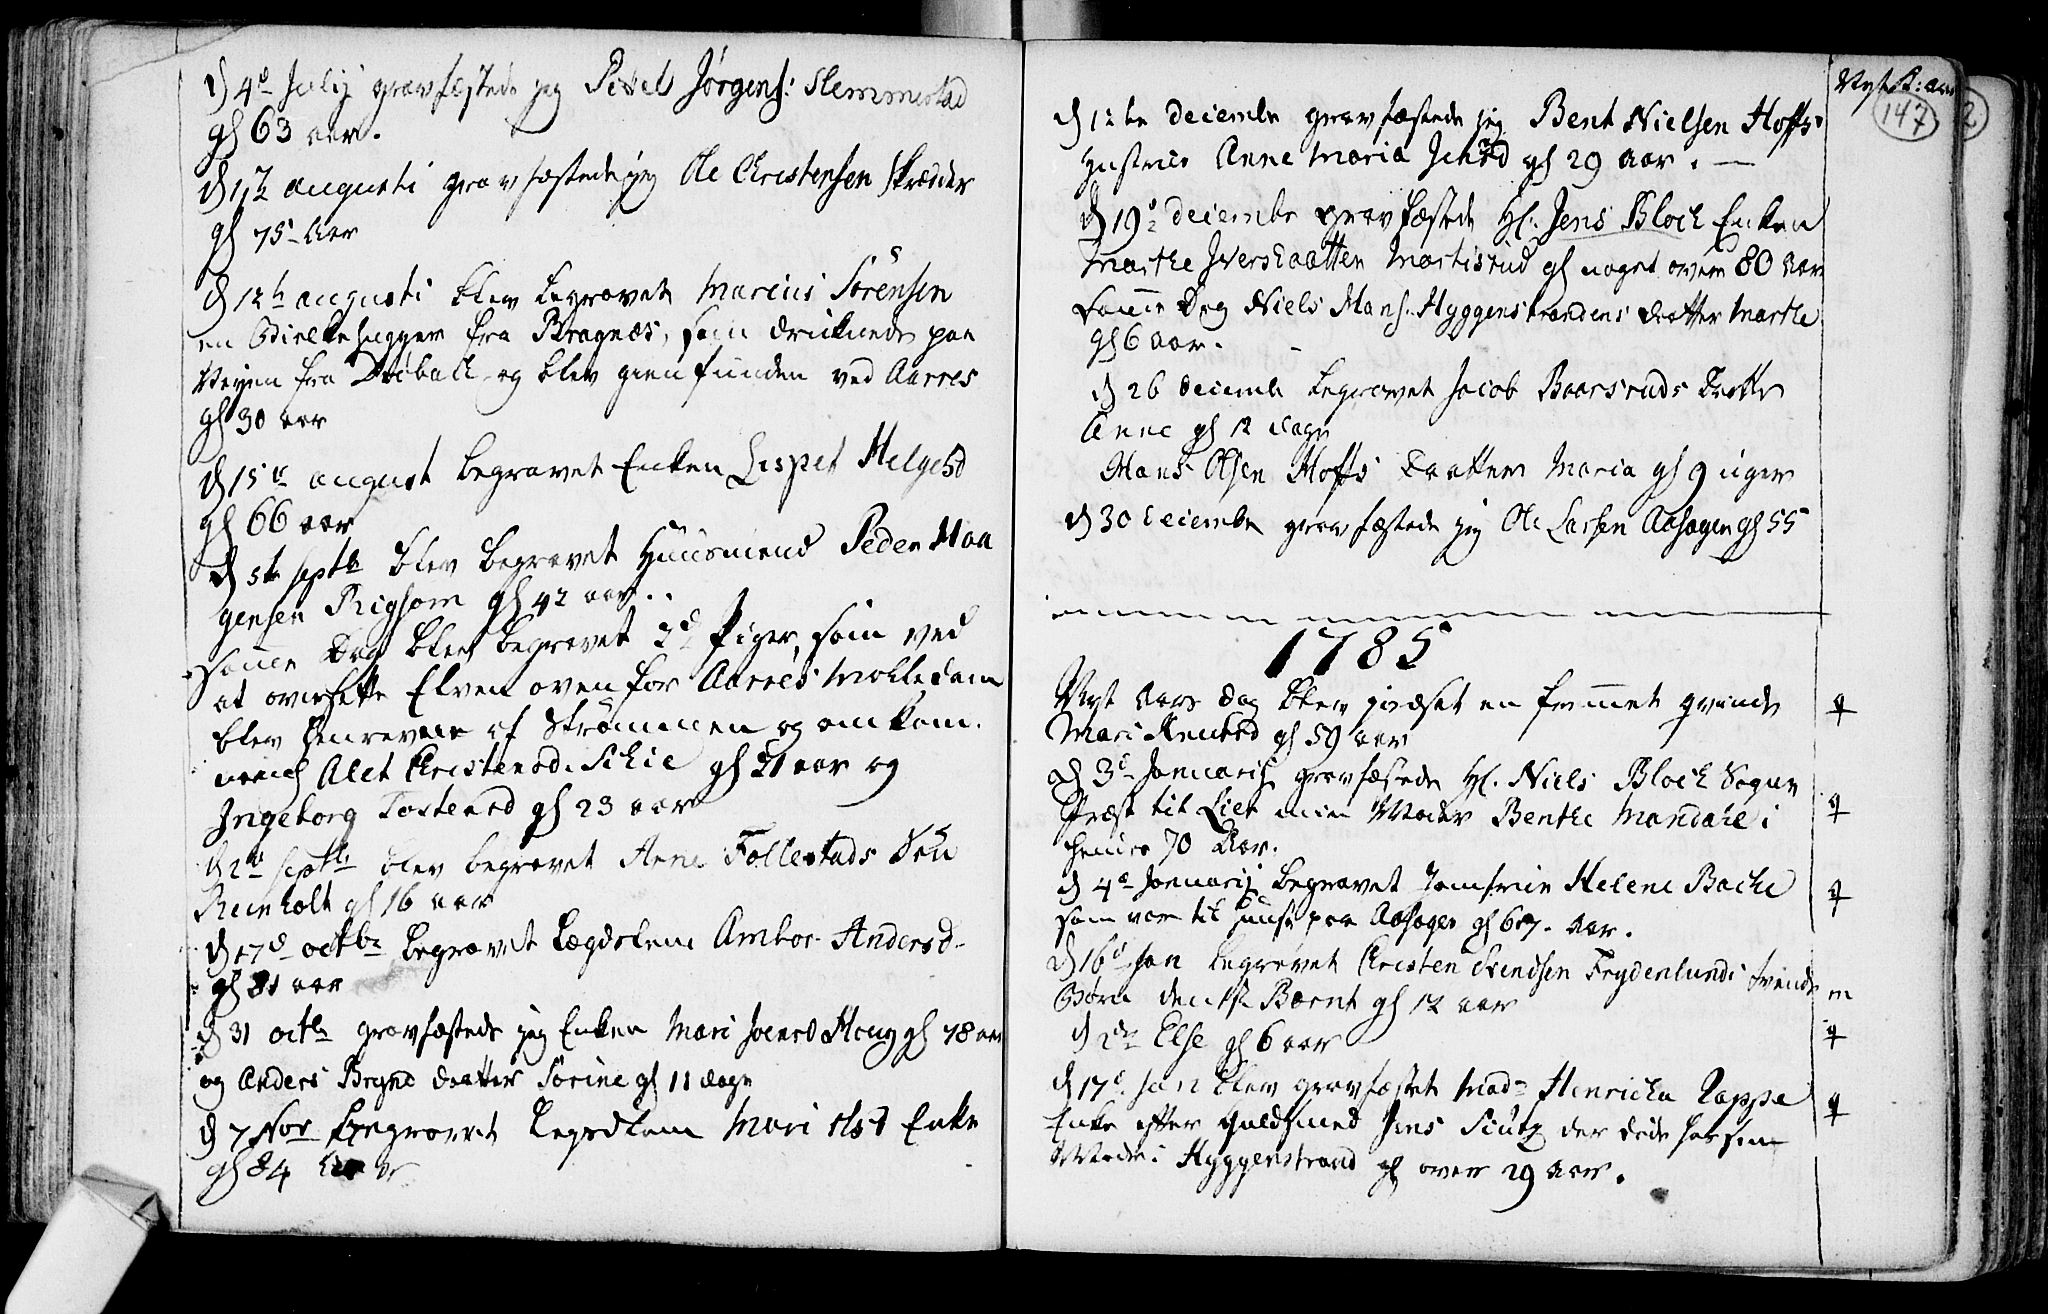 D 4d Julij gravfæstede jeg Pettel Jørgens: Slemmestad
gl 63 aar.
D 11te augusti gravfæstede jeg Ole Christensen Skræder
gl 75 Aar
D 12te augusti blev begravet Marcus Sørensen
en Bielkehugger fra Bragnæs, som druknede paa
Veyen fra Drøbach og blev gienfunden ved Aarres
gl 30 aar
D 15de august begravet Enken Lispet Helgesd
gl 66 aar
D 5te septb blev begravet Huusmend Peder Maa
gensen Rigsom gl 42 aar..
Samme Dag blev begravet 2de Piger, som ved
at oversette Elven ovenfor Aarres Mølledam
blev henreven af Strømmen og omkom.
nemlig Alet Christensd. Schie gl 21 aar og
Ingeborg Tostensd gl 23 aar
septb blev begravet Arne Follestads Søn
Reinholt gl 16 aar
D 17d octbr begravet Lægdslem Ambor Andersd
gl 81 aar
D 31 octb gravfæstede jeg Enken Mari Joensd Houg gl 78 aar
og Anders Brynd daatter Sørine gl 11 dage
D 7 Nov begravet Legdslem Mari Olsd Enke
gl 84 Aar
Nyt K: aar
147
2
D 12te decembr gravfæstede jeg Bent Nielsen Hoffs
Hustrue Anne Maria gl 29 aar.
D 19de decembr gravfæstede Hl. Jens Bloch Enken
Marthe Iversdaatter Mortisrud gl noget over 80 Aar
Samme Dag Niels Hans. Hyggenstrandens daatter Marthe
gl 6 aar.
D 26 decemb begravet Jacob Baarsruds Daatter
Anne gl 12 dage
Hans Olsen Hoffs Daatter Maria gl 9 uger
D 30 decembr gravfæstede jeg Ole Larsen Aahagen gl 55
1785
Nyt Aars dag blev jordfæstet en fremmet qvinde q
Mari Knutsd gl 59 aar
D 3de Januarij gravfæstede Hl. Niels Bloch Sogne
Præst til Lier min Moder Benthe Mandahl i q
hendes 70 Aar.
D 4de Januarij begravet Jomfrue Helene Bache q
som var til huuse paa Aahagen gl 67. Aar.
D 16d Jan begravet Christen Svendsen Frydenlunds tvende
Børn den 1ste Bærnt gl 12 aar m
d 2den Else gl 6 aar q
D 17d Jan blev gravfæstet Mad Henricha Rappe
Enke efter Guldsmed Jens der døde hos sin q
Moder i Hyggenstrand gl over 29 Aar.